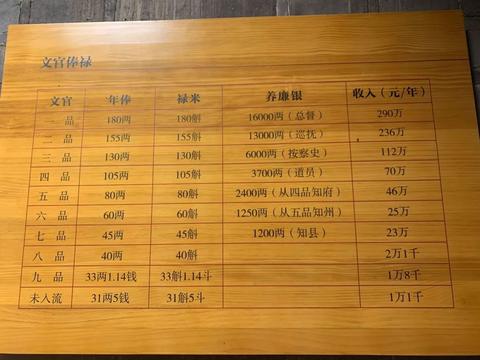 文官俸禄
文官 年俸 禄米 养廉银 收入（元/年）
一品 180两 180斛 16000两（总督） 290万
二品 155两 155斛 13000两（巡抚） 236万
三品 130两 130斛 6000两（按察史） 112万
四品 105两 105斛 3700两（道员） 70万
五品 80两 80斛 2400两（从四品知府） 46万
六品 60两 60斛 1250两（从五品知州） 25万
七品 45两 45斛 1200两（知县） 23万
八品 40两 40斛 2万1千
九品 33两1.14钱 33斛1.14斗 1万8千
未入流 31两5钱 31斛5斗 1万1千